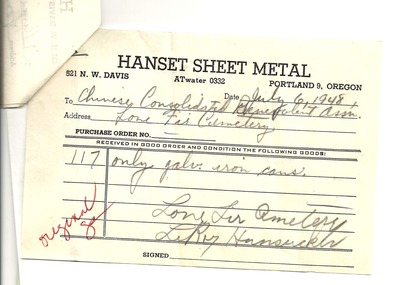 HANSET SHEET METAL
521 N. W. DAVIS
ATwater 0332
PORTLAND 9, OREGON
Date July 6, 1948
To Chinese Consolidated Benevolent Assn.
Address Lone Fir Cemetery
PURCHASE ORDER NO.
RECEIVED IN GOOD ORDER AND CONDITION THE FOLLOWING GOODS:
117 only galv. iron cans.
Lone Fir Cemetery
LeRoy
original
SIGNED